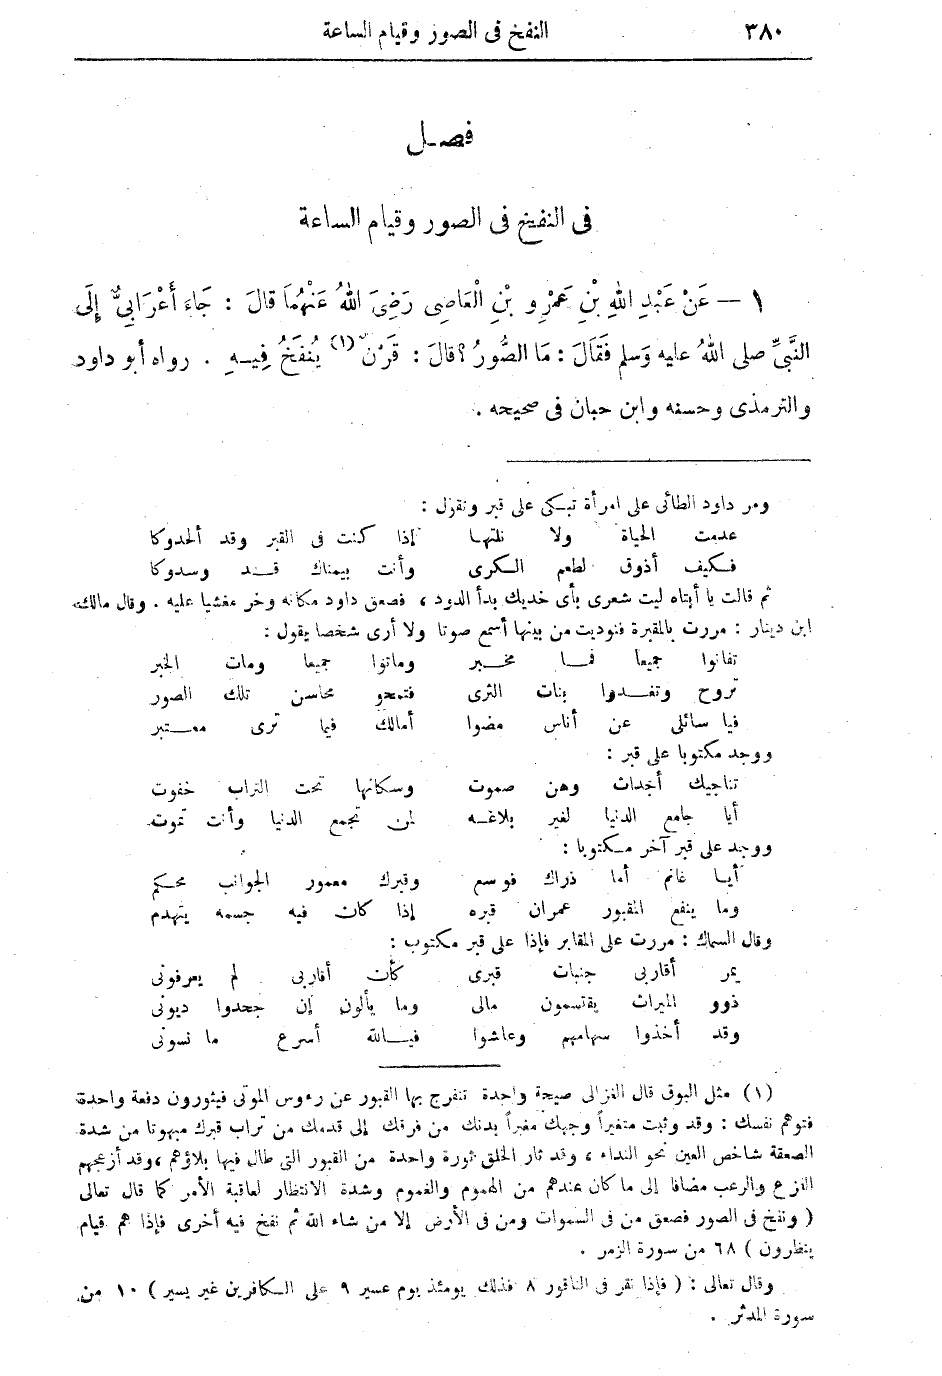 ٣٨٠ النفخ فى الصور وقيام الساعة
فصل
فى النفخ فى الصور وقيام الساعة
١ — عَنْ عَبْدِ اللهِ بْنِ عَمْرٍو بْنِ الْعَاصِى رَضِىَ اللهُ عَنْهُمَا قالَ : جَاءَ أَعْرَابِىٌّ إِلَى
النَّبِىِّ صلى اللهُ عليه وَسلم فَقَالَ : مَا الصُّورُ ؟ قالَ : قَرْنٌ (١) يُنْفَخُ فِيهِ . رواه أبو داود
والترمذى وحسنه وابن حبان فى صحيحه .
ومر داود الطائى على امرأة تبكى على قبر وتقول :
عدمت الحياة ولا نلتها إذا كنت فى القبر وقد ألحدوكا
فكيف أذوق لطعم الكرى وأنت بيمناك قد وسدوكا
ثم قالت يا أبتاه ليت شعرى بأى خديك بدأ الدود ، فصعق داود مكانه وخر مغشيا عليه . وقال مالك
ابن دينار : مررت بالمقبرة فنوديت من بينها أسمع صوتا ولا أرى شخصا يقول :
تفانوا جميعا فما مخبر وماتوا جميعا ومات الخبر
تروح وتغدوا بنات الثرى فتمحو محاسن تلك الصور
فيا سائلى عن أناس مضوا أمالك فيما ترى معتبر
ووجد مكتوبا على قبر :
تناجيك أجداث وهن صموت وسكانها تحت التراب خفوت
أيا جامع الدنيا لغير بلاغه لمن تجمع الدنيا وأنت تموت
ووجد على قبر آخر مكتوبا :
أيا غانم أما ذراك فوسع وقبرك معمور الجوانب محكم
وما ينفع المقبور عمران قبره إذا كان فيه جسمه يتهدم
وقال السماك : مررت على المقابر فإذا على قبر مكتوب :
يمر أقاربى جنبات قبرى كأن أقاربى لم يعرفونى
ذوو الميراث يقتسمون مالى وما يألون إن جحدوا ديونى
وقد أخذوا سهامهم وعاشوا فيالله أسرع ما نسونى
(١) مثل البوق قال الغزالى صيحة واحدة تنفرج بها القبور عن رءوس الموتى فيثورون دفعة واحدة
فتوهم نفسك : وقد وثبت متغيراً وجهك مغبراً بدنك من فرقك إلى قدمك من تراب قبرك مبهوتا من شدة
الصعقة شاخص العين نحو النداء ، وقد ثار الخلق ثورة واحدة من القبور التى طال فيها بلاؤهم ، وقد أزعجهم
الفزع والرعب مضافا إلى ما كان عندهم من الهموم والغموم وشدة الانتظار لعاقبة الأمر كما قال تعالى
( ونفخ فى الصور فصعق من فى السموات ومن فى الأرض إلا من شاء الله ثم نفخ فيه أخرى فإذا هم قيام
ينظرون ) ٦٨ من سورة الزمر .
وقال تعالى : ( فإذا نقر فى الناقور ٨ فذلك يومئذ يوم عسير ٩ على الكافرين غير يسير ) ١٠ من
سورة المدثر .